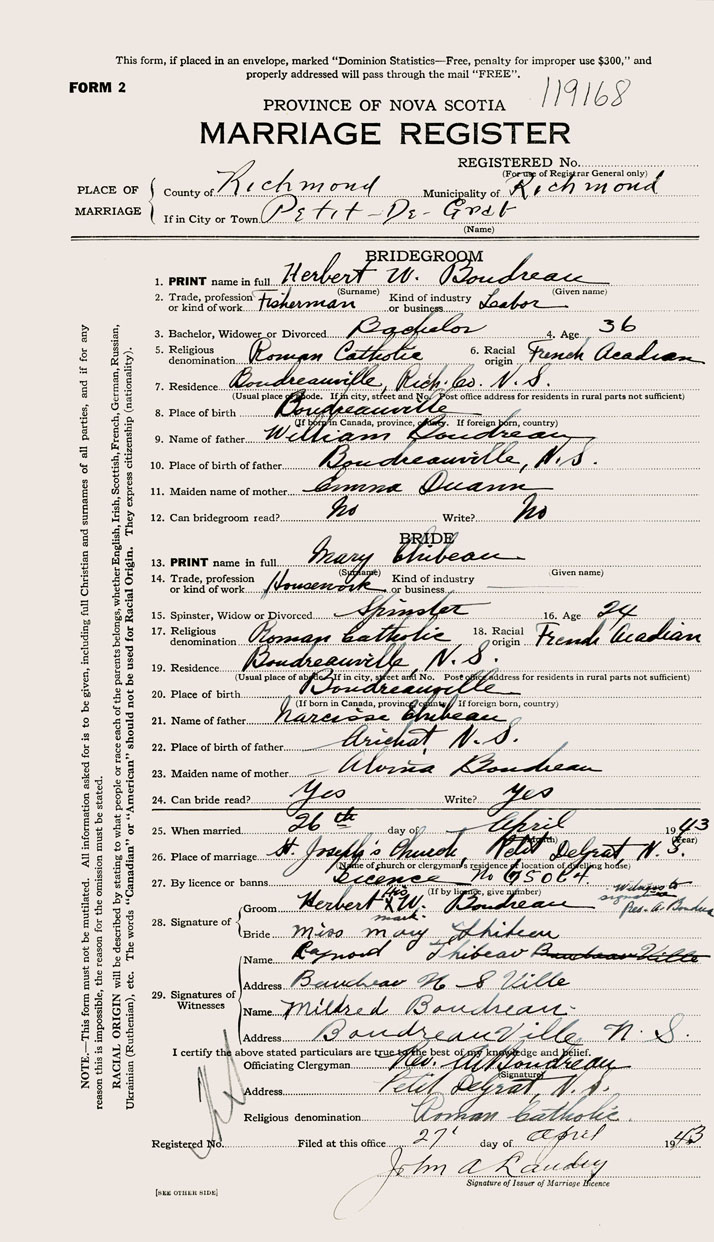 This form, if placed in an envelope, marked "Dominion Statistics—Free, penalty for improper use $300," and
properly addressed will pass through the mail "FREE".
FORM 2
119168
PROVINCE OF NOVA SCOTIA
MARRIAGE REGISTER
REGISTERED No.
(For use of Registrar General only)
PLACE OF MARRIAGE
County of Richmond Municipality of Richmond
If in City or Town Petit-De-Grat
(Name)
BRIDEGROOM
1. PRINT name in full Herbert W. Boudreau
(Surname) (Given name)
2. Trade, profession or kind of work Fisherman Kind of industry or business Labor
3. Bachelor, Widower or Divorced Bachelor 4. Age 36
5. Religious denomination Roman Catholic 6. Racial origin French Acadian
7. Residence Boudreauville, Rich. Co. N. S.
(Usual place of abode. If in city, street and No. Post office address for residents in rural parts not sufficient)
8. Place of birth Boudreauville
(If born in Canada, province, county. If foreign born, country)
9. Name of father William Boudreau
10. Place of birth of father Boudreauville, N.S.
11. Maiden name of mother Emma Duann
12. Can bridegroom read? No Write? No
BRIDE
13. PRINT name in full Mary Thibeau
(Surname) (Given name)
14. Trade, profession or kind of work Housework Kind of industry or business
15. Spinster, Widow or Divorced Spinster 16. Age 24
17. Religious denomination Roman Catholic 18. Racial origin French Acadian
19. Residence Boudreauville, N. S.
(Usual place of abode. If in city, street and No. Post office address for residents in rural parts not sufficient)
20. Place of birth Boudreauville
(If born in Canada, province, county. If foreign born, country)
21. Name of father Narcisse Thibeau
22. Place of birth of father Arichat, N. S.
23. Maiden name of mother Alvina Boudreau
24. Can bride read? Yes Write? Yes
25. When married 26th day of April 1943
(Month) (Year)
26. Place of marriage St. Joseph's Church, Petit DeGrat, N. S.
(Name of church or clergyman's residence or location of dwelling house)
27. By licence or banns Licence No 65064
(If by licence, give number)
Witness to signature Rev. A. Boudreau
28. Signature of
Groom Herbert his X mark W. Boudreau
Bride Miss Mary Thibeau
29. Signatures of Witnesses
Name Raymond Thibeau
Address Boudreau N S Ville
Name Mildred Boudreau
Address BoudreauVille N. S.
I certify the above stated particulars are true to the best of my knowledge and belief.
Officiating Clergyman Rev. A. Boudreau
(Signature)
Address Petit DeGrat, N. S.
Religious denomination Roman Catholic
Registered No. Filed at this office 27 day of April 1943
John A Landry
Signature of Issuer of Marriage Licence
[SEE OTHER SIDE]
NOTE.—This form must not be mutilated. All information asked for is to be given, including full Christian and surnames of all parties, and if for any
reason this is impossible, the reason for the omission must be stated.
RACIAL ORIGIN will be described by stating to what people or race each of the parents belongs, whether English, Irish, Scottish, French, German, Russian,
Ukrainian (Ruthenian), etc. The words "Canadian" or "American" should not be used for Racial Origin. They express citizenship (nationality).